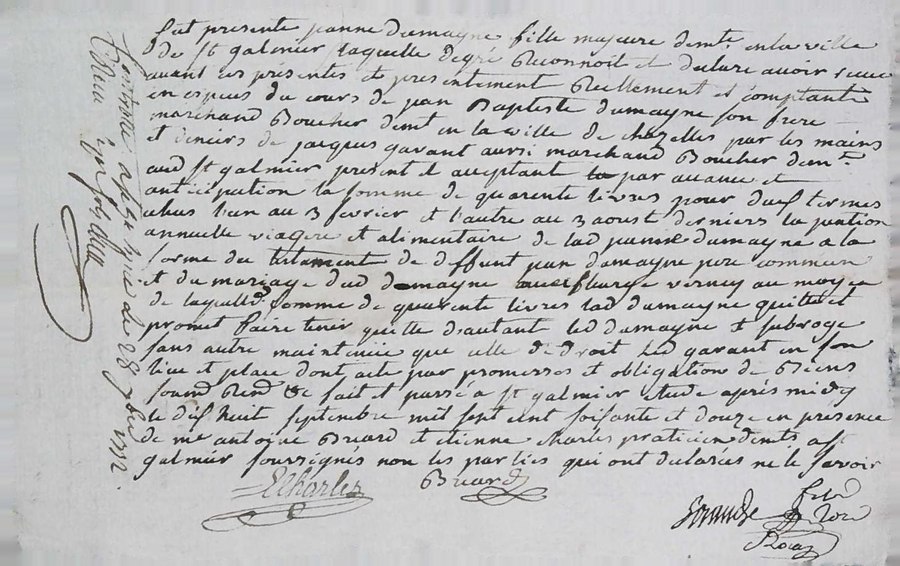 fut presente jeanne dumayne fille majeure demt. en la ville
de st galmier laquelle de gré Reconnoit et declare avoir receu
avant ces présentes et presentement Réellement et comptant
en especes du cours de jean Baptiste dumayne son frere
marchand Boucher demt en la ville de chazelles par les mains
et deniers de jacques garant aussi marchand Boucher demt.
aud st galmier present et acceptant par avance et
anticipation la somme de quarente livres pour deux termes
echus l'un au 3 fevrier et l'autre au 3 aoust derniers la pention
annuelle viagere et alimentaire de lad jeanne dumayne a la
forme du testament de deffunt jean dumayne pere commun
et du mariage dud dumayne avec fleurye verney au moyen
de laquelle somme de quarente livres lad dumayne quitte et
promet faire tenir quitte d'autant led dumayne et subroge
sans autre maintenüe que celle de droit led garant en son
lieu et place dont acte par promesses et obligation de Biens
soumn Renn & fait et passé a st galmier etude après midy
le dix huit septembre mil sept cent soixante et douze en presence
de me antoine Buard et etienne charles praticiens demts a st
galmier soussignés non les parties qui ont declarées ne le sçavoir
E Charles Buard